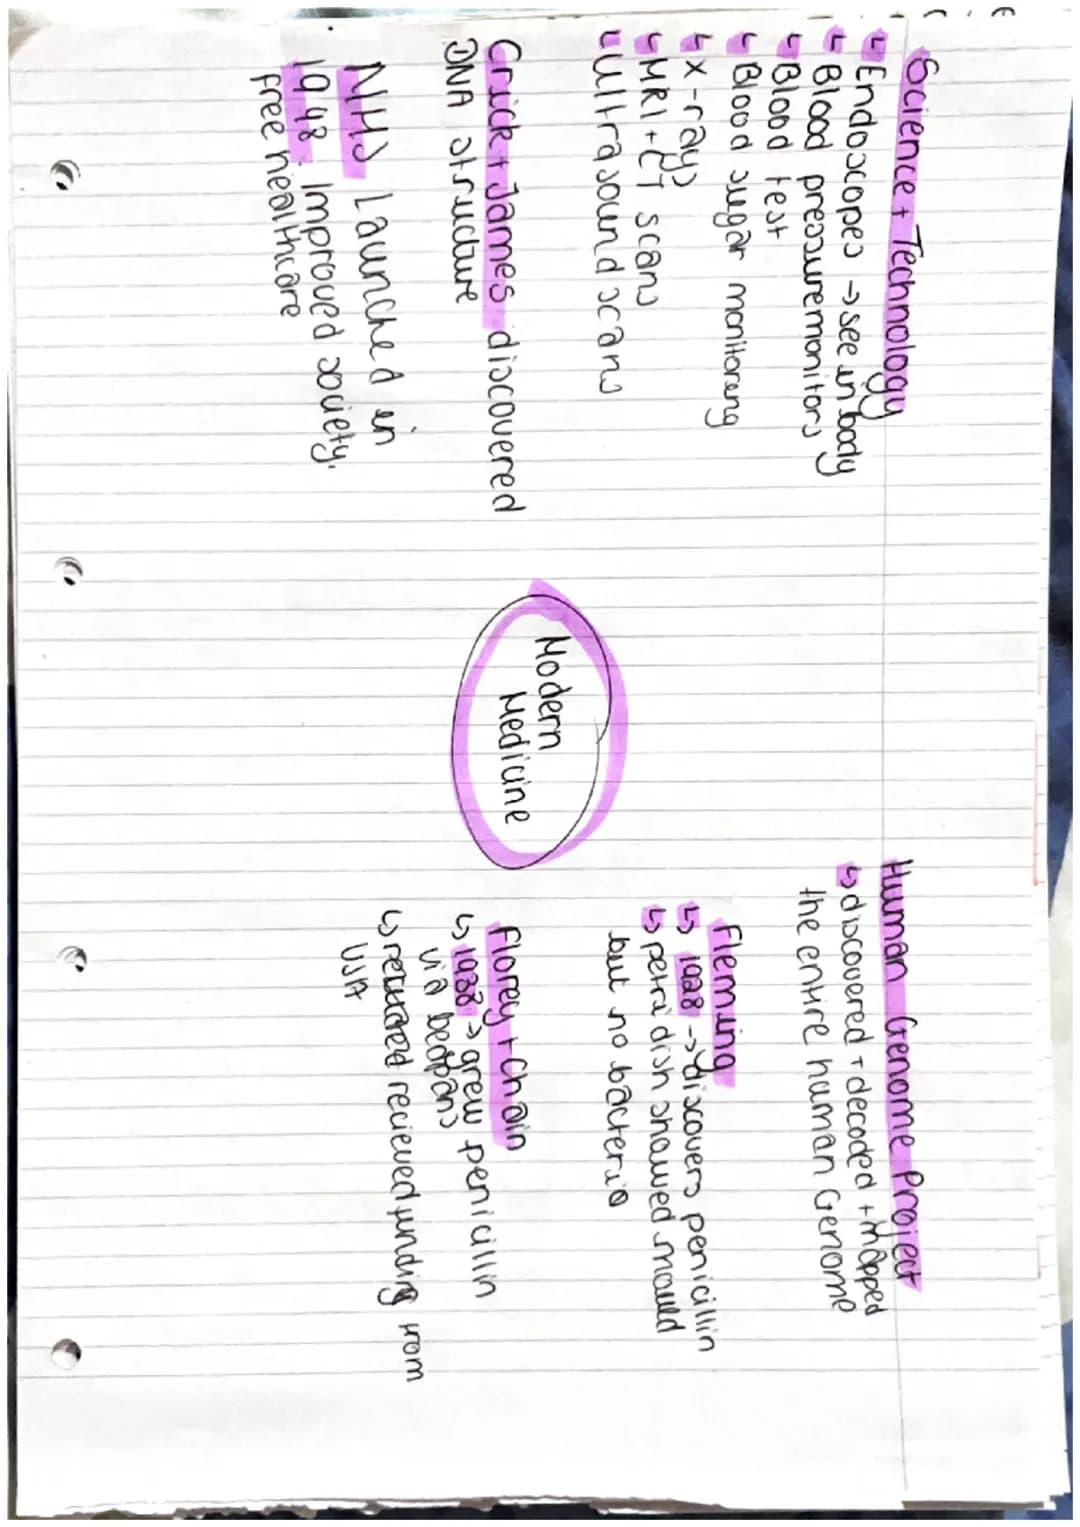 Science + Technology
↳ Endoscopes → see in body
↳ Blood pressure monitors
↳ Blood test
↳ Blood sugar monitoring
↳ X-rays
↳ MRI + CT scans
↳ Ultrasound scans
Crick + James discovered
DNA structure
NHS Launched in
1948. Improved society.
free healthcare
Modern
Medicine
Human Genome Project
↳ discovered + decoded + mapped
the entire human Genome
Fleming
↳ 1928 → discovers penicillin
↳ petri dish showed mould
but no bacteria
Florey + Chain
↳ 1938 → grew penicillin
via bedpans
↳ recieved funding from
USA